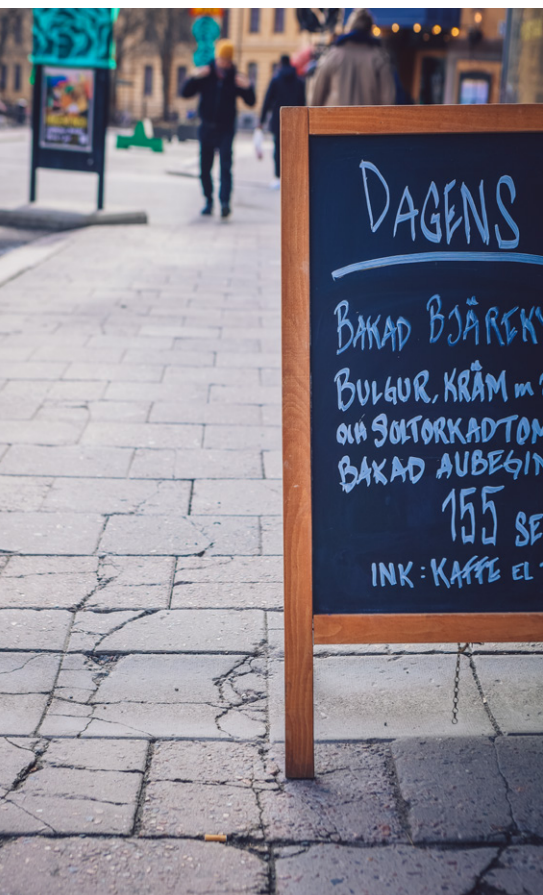 DAGENS
BAKAD BJÄREK
BULGUR, KRÄM m
och SOLTORKADTOM
BAKAD AUBEGIN
155 SE
INK: KAFFE EL